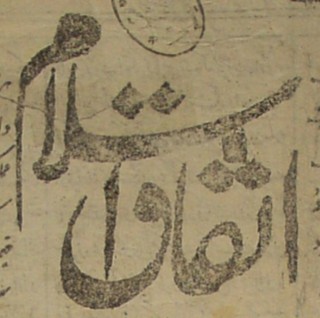 اتفاق اسلام